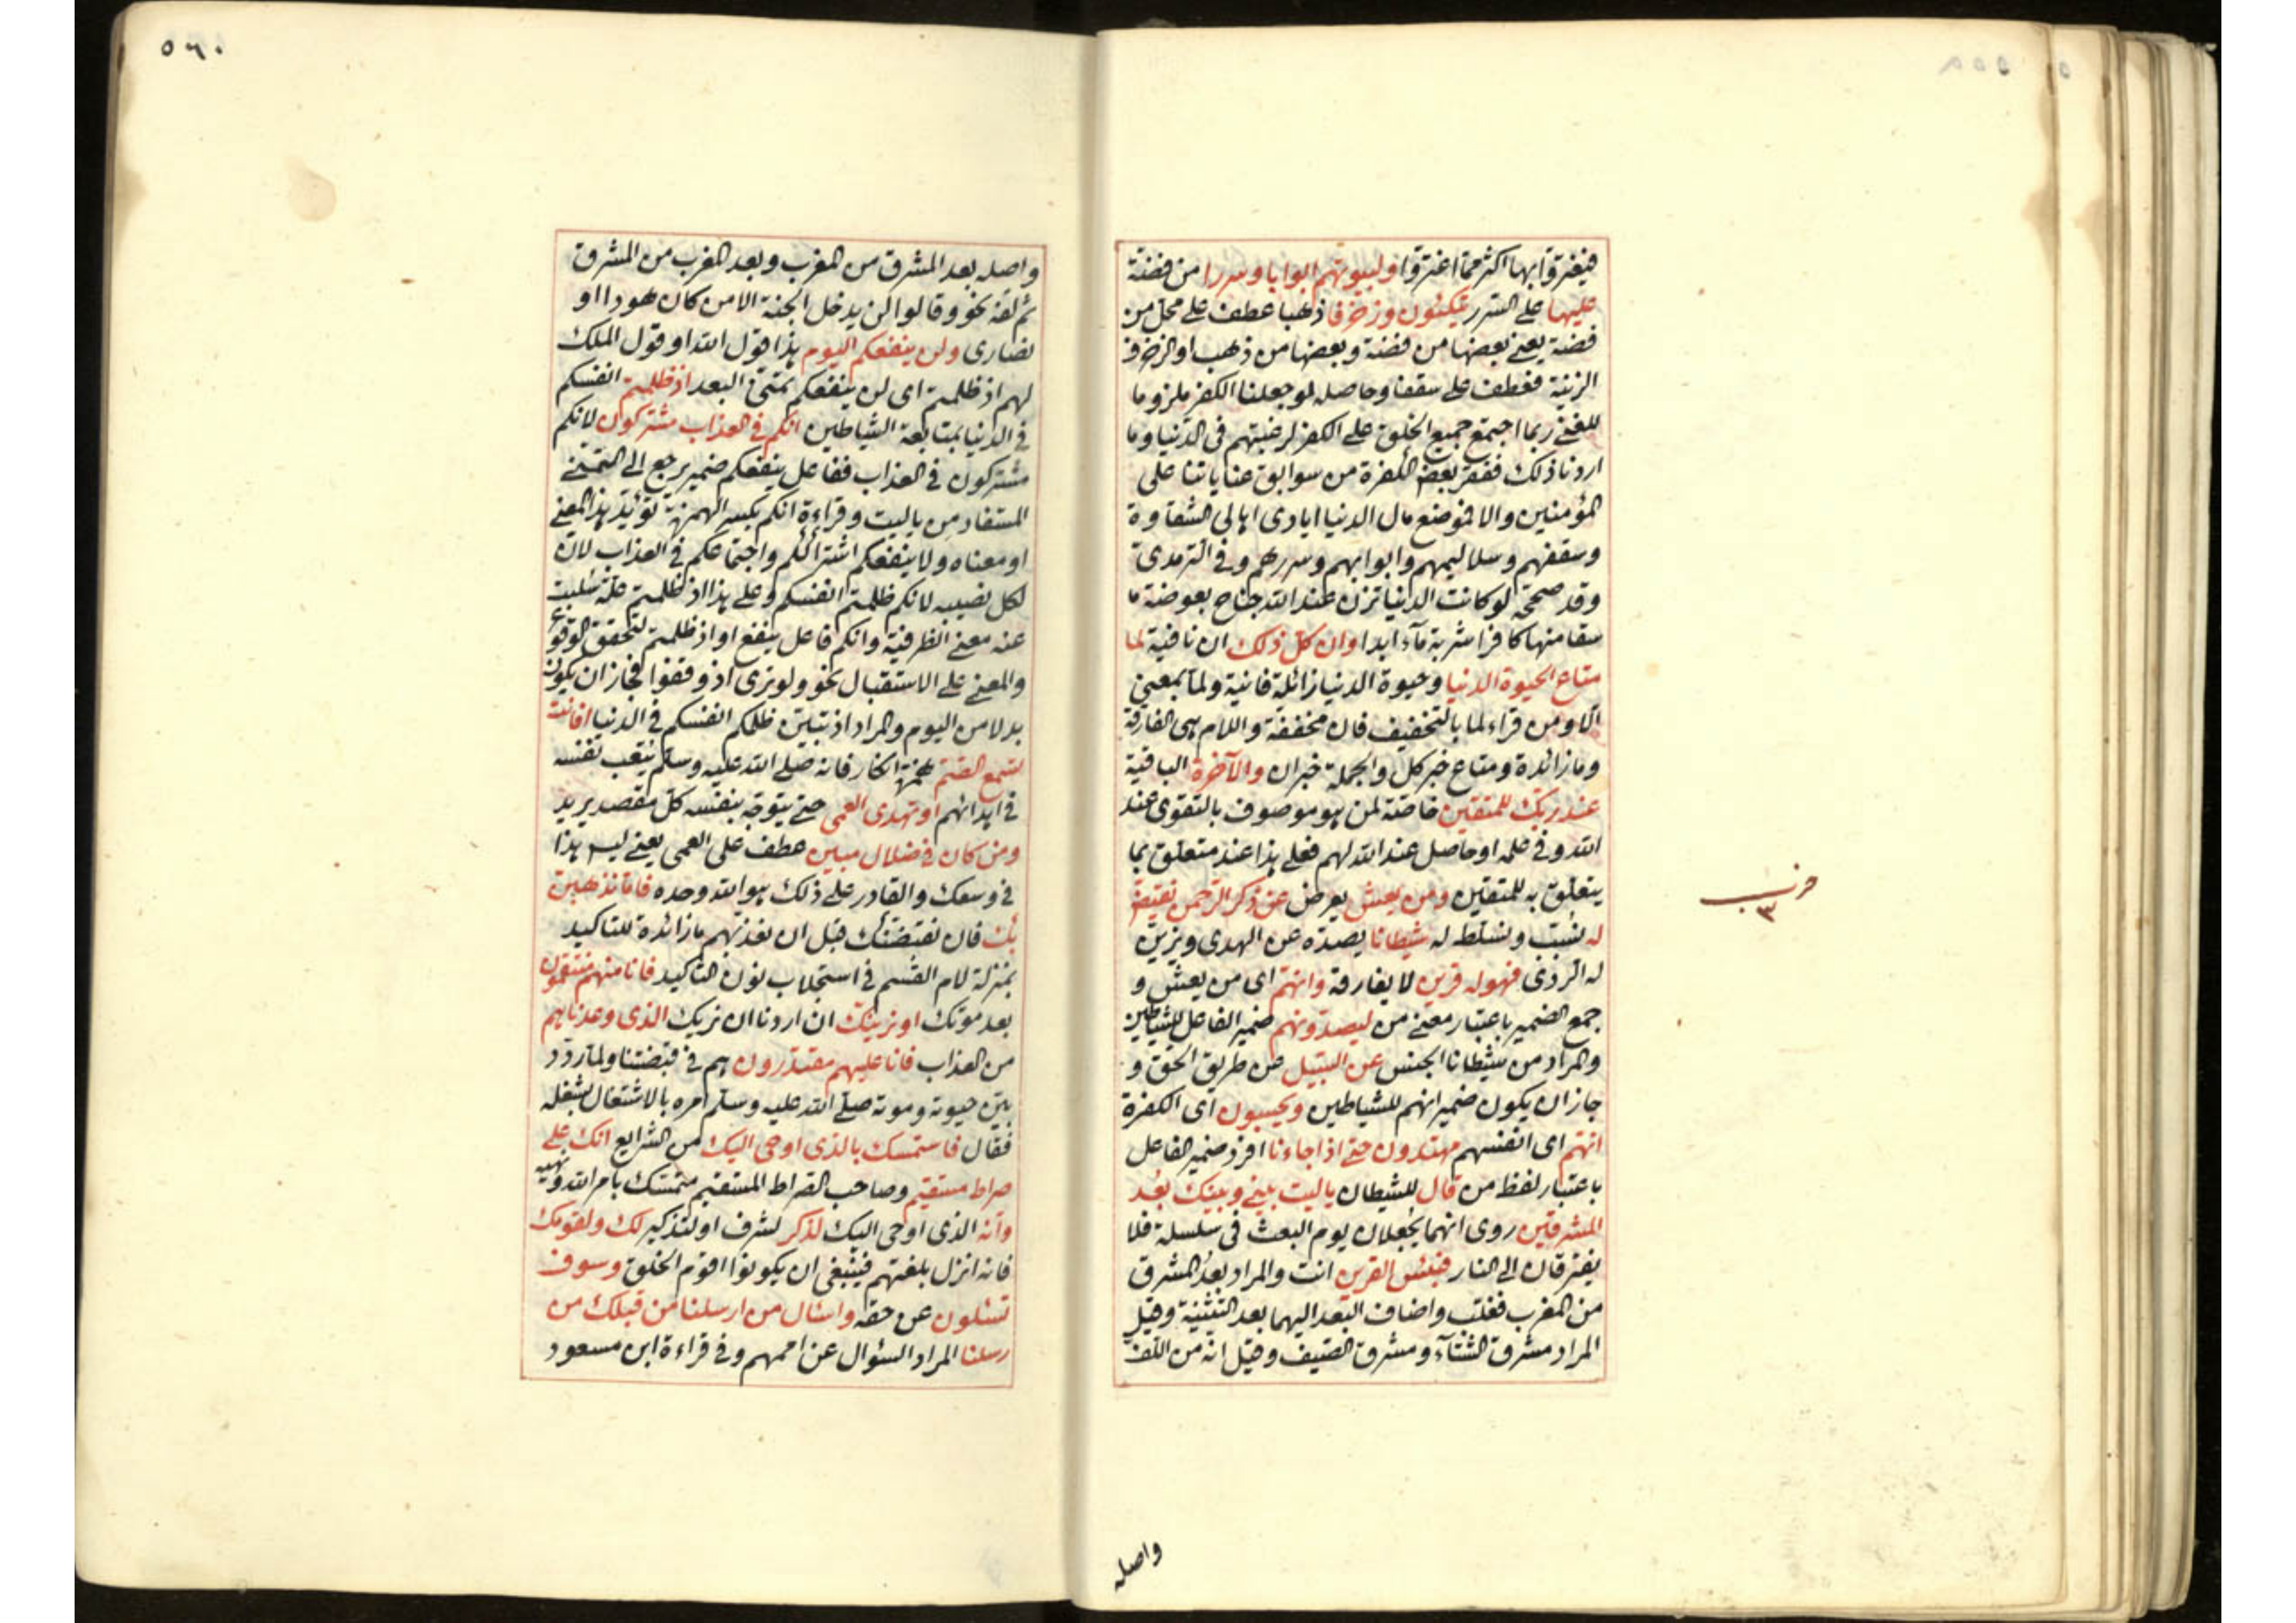 فيغتروا بها اكثر مما اغتروا ولبيوتهم ابوابا وسررا من فضة
عليها على السرر يتكئون وزخرفا ذهبا عطف على محل من
فضة يعني بعضها من فضة وبعضها من ذهب او الزخرف
الزينة فعطف على سقفا وحاصله لو جعلنا الكفر ملزوما
للغنى ربما اجتمع جميع الخلق على الكفر لرغبتهم في الدنيا وما
اردنا ذلك ففقر بعض الكفرة من سوابق عناياتنا على
المؤمنين والا فوضع مال الدنيا ايادى اهالي الشقاوة
وسقفهم وسلاليمهم وابوابهم وسررهم وفي الترمدى
وقد صححه لو كانت الدنيا تزن عند الله جناح بعوضة ما
سقا منها كافرا شربة مآء ابدا وان كل ذلك ان نافية لما
متاع الحيوة الدنيا وحيوة الدنيا زائلة فانية ولما بمعنى
الا ومن قراء لما بالتخفيف فان مخففة واللام هى الفارقة
وما زائدة ومتاع خبر كل والجملة خبر ان والآخرة الباقية
عند ربك للمتقين خاصة لمن هو موصوف بالتقوى عند
الله وفي علمه او حاصل عند الله لهم فعلى هذا عند متعلق بما
يتعلق به للمتقين ومن يعش يعرض عن ذكر الرحمن نقيض
له نسبب ونسلط له شيطانا يصده عن الهدى ويزين
له الردى فهو له قرين لا يفارقه وانهم اى من يعش و
جمع الضمير باعتبار معنى من ليصدونهم ضمير الفاعل للشياطين
والمراد من شيطانا الجنس عن السبيل عن طريق الحق و
جاز ان يكون ضمير انهم للشياطين ويحسبون اى الكفرة
انهم اى انفسهم مهتدون حتى اذا جاءنا افرد ضمير الفاعل
باعتبار لفظ من قال للشيطان يا ليت بيني وبينك بعد
المشرقين روى انهما يجعلان يوم البعث في سلسلة فلا
يفترقان الى النار فبئس القرين انت والمراد بعد المشرق
من المغرب فغلب واضاف البعد اليهما بعد التثنية وقيل
المراد مشرق الشتآء ومشرق الصيف وقيل انه من اللف
واصله
حزب
٣
٥٦٠
واصله بعد المشرق من المغرب وبعد المغرب من المشرق
ثم لف نحو وقالوا لن يدخل الجنة الا من كان هودا او
نصارى ولن ينفعكم اليوم هذا قول الله او قول الملك
لهم اذ ظلمتم اى لن ينفعكم تمنى البعد اذ ظلمتم انفسكم
في الدنيا بمتابعة الشياطين انكم في العذاب مشتركون لانكم
مشتركون في العذاب ففاعل ينفعكم ضمير يرجع الى التمني
المستفاد من يا ليت وقراءة انكم بكسر الهمزة تؤيد هذا المعنى
او معناه ولا ينفعكم اشتراككم واجتماعكم في العذاب لان
لكل نصيبه لانكم ظلمتم انفسكم وعلى هذا اذ ظلمتم علة سلبت
عنه معنى الظرفية وانكم فاعل ينفع او اذ ظلمتم لتحقق الوقوع
والمعنى على الاستقبال نحو ولو ترى اذ وقفوا فجاز ان يكون
بدلا من اليوم والمراد اذ تبين ظلمكم انفسكم في الدنيا افانت
تسمع الصم همزة انكار فانه صلى الله عليه وسلم يتعب نفسه
في اهدائهم او تهدى العمى حتى يتوجه بنفسه كل مقصد يريد
ومن كان في ضلال مبين عطف على العمى يعني ليس هذا
في وسعك والقادر على ذلك هو الله وحده فاما نذهبن
بك فان نقبضنك قبل ان نعذبهم ما زائدة للتاكيد
بمنزلة لام القسم في استجلاب نون التاكيد فانا منهم منتقمون
بعد موتك او نرينك ان اردنا ان نريك الذى وعدناهم
من العذاب فانا عليهم مقتدرون هم في قبضتنا ولما ردد
بين حيوته وموته صلى الله عليه وسلم امره بالاشتغال بشغله
فقال فاستمسك بالذى اوحى اليك من الشرايع انك على
صراط مستقيم وصاحب الصراط المستقيم متمسك بامر الله ونهيه
وانه الذى اوحى اليك لذكر لشرف او لتذكير لك ولقومك
فانه انزل بلغتهم فينبغى ان يكونوا اقوم الخلق وسوف
تسئلون عن حقه واسئال من ارسلنا من قبلك من
رسلنا المراد السئوال عن اممهم وفي قراءة ابن مسعود